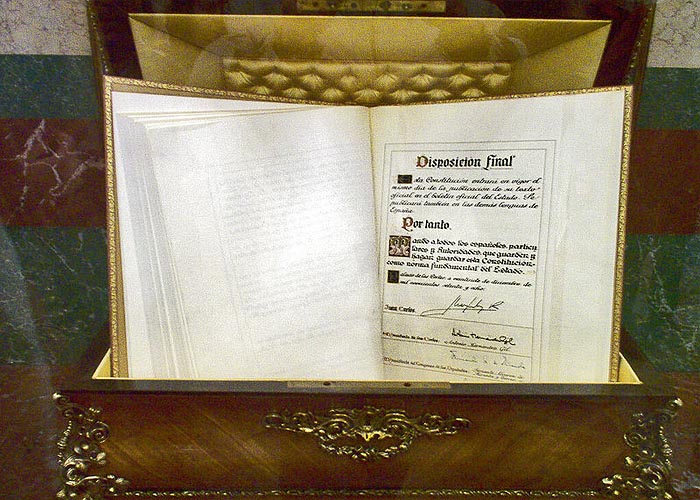 Disposicion final
sta Constitución entrará en vigor el
mismo día de la publicación de su texto
oficial en el boletin oficial del Estado. Se
publicará tambien en las demás lenguas de
España
Por tanto
ando a todos los españoles, particu
lares y Autoridades, que guarden y
hagan guardar esta Constitución
como norma fundamental del Estado.
alacio de las Cortes a veintisiete de diciembre de
mil novecientos setenta y ocho
Juan Carlos
Presidente de las Cortes
Antonio Hernandez Gil
Presidente del Congreso de los Diputados